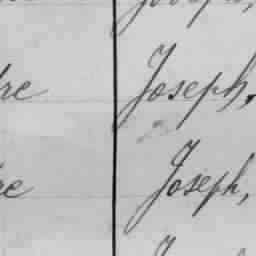 re Joseph,
re Joseph,